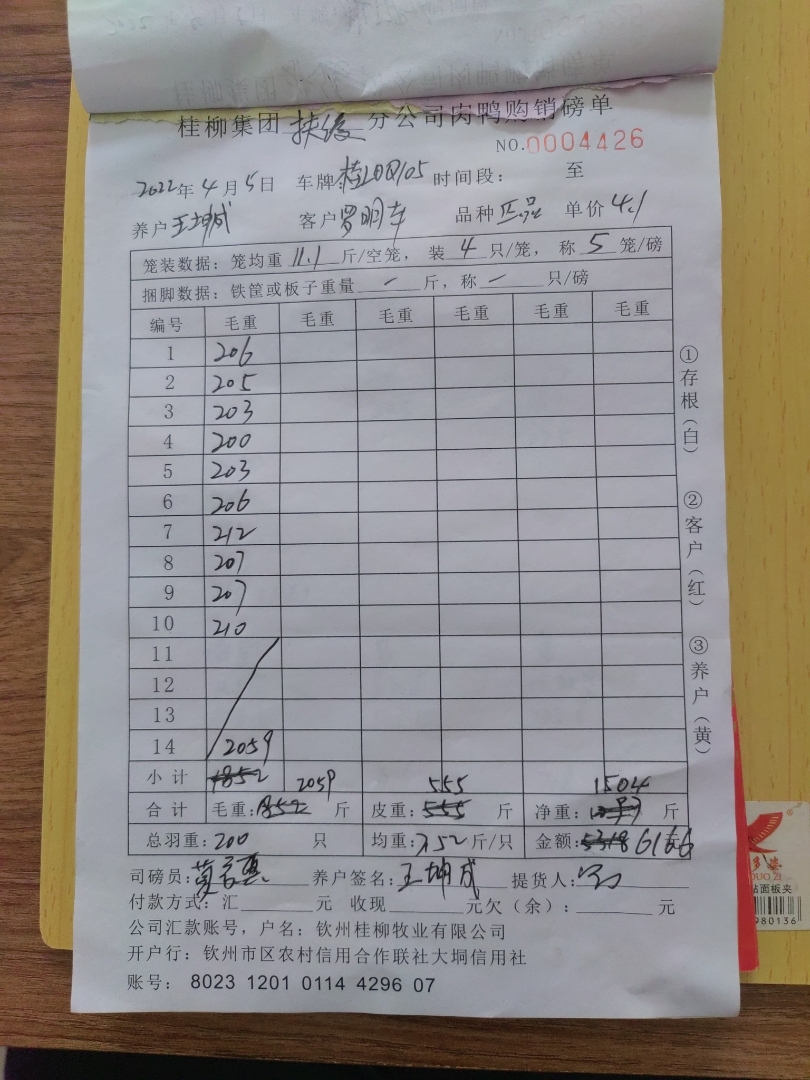 桂柳集团 扶绥 分公司肉鸭购销磅单
NO.0004426
2022年4月5日 车牌: 时间段: 至
养户 王坤成 客户 罗明幸 品种 匹品 单价 4.1
笼装数据:笼均重 11.1 斤/空笼, 装 4 只/笼, 称 5 笼/磅
捆脚数据:铁筐或板子重量 — 斤,称 — 只/磅
编号 毛重 毛重 毛重 毛重 毛重 毛重
1 206
2 205
3 203
4 200
5 203
6 206
7 212
8 207
9 207
10 210
11
12
13
14 2059
小计 1852 2059 555 1504
合计 毛重:1852 斤 皮重:555 斤 净重: 斤
总羽重:200 只 均重:7.52斤/只 金额:5318 6166
司磅员: 养户签名:王坤成 提货人:
付款方式:汇 元 收现 元欠(余): 元
公司汇款账号,户名:钦州桂柳牧业有限公司
开户行:钦州市区农村信用合作联社大垌信用社
账号: 8023 1201 0114 4296 07
①存根(白)
②客户(红)
③养户(黄)
多姿
DUO ZI
站面板夹
980136